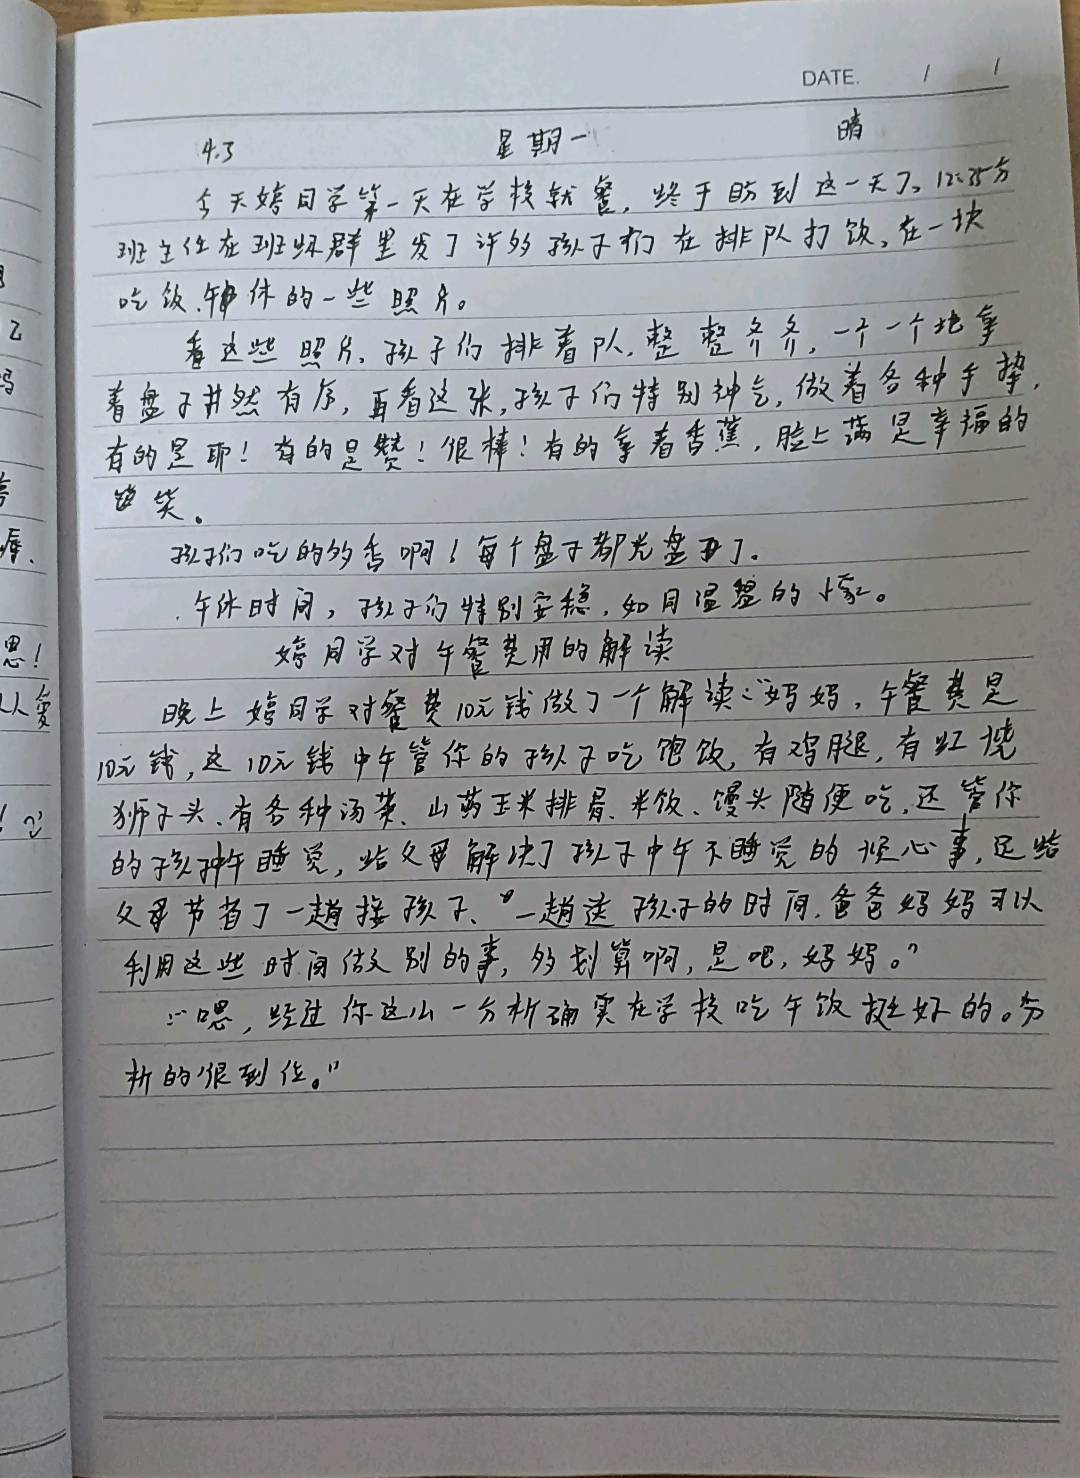 DATE. / /
4.3 星期一 晴
今天婷同学第一天在学校就餐，终于盼到这一天了。12:35分
班主任在班级群里发了许多孩子们在排队打饭，在一块
吃饭.午休的一些照片。
看这些照片，孩子们排着队，整整齐齐，一个一个地拿
着盘子井然有序，再看这张，孩子们特别神气，做着各种手势，
有的是耶！有的是赞！很棒！有的拿着香蕉，脸上满是幸福的
笑。
孩子们吃的多香啊！每个盘子都光盘了。
午休时间，孩子们特别安稳，如同温馨的家。
婷同学对午餐费用的解读
晚上婷同学对餐费10元钱做了一个解读："妈妈，午餐费是
10元钱，这10元钱中午管你的孩子吃饱饭，有鸡腿，有红烧
狮子头、有各种汤菜、山药玉米排骨、米饭、馒头随便吃，还管你
的孩子中午睡觉，给父母解决了孩子中午不睡觉的烦心事，还给
父母节省了一趟接孩子、一趟送孩子的时间，爸爸妈妈可以
利用这些时间做别的事，多划算啊，是吧，妈妈。"
："嗯，经过你这么一分析确实在学校吃午饭挺好的。分
析的很到位。"
思！